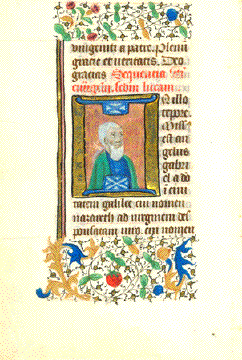 unigeniti a patre. Pleni
gracie et veritatis. Deo
gracias Sequencia
secundum lucam
N illo
tepore
Miss
est an
gelus
gabri
el a do
i civi
tatem galilee cui nomen
nazareth ad virginem des
ponsatam viro cui nomen